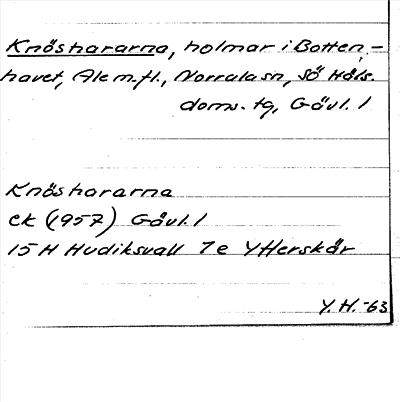 Knöshararna, holmar i Botten-
havet, Ale m.fl., Norrala sn, Sö Häls.
doms. tg, Gävl. l
Knöshararna
ek (1957) Gävl. l
15 H Hudiksvall 7 e Ytterskär
Y. H. -63